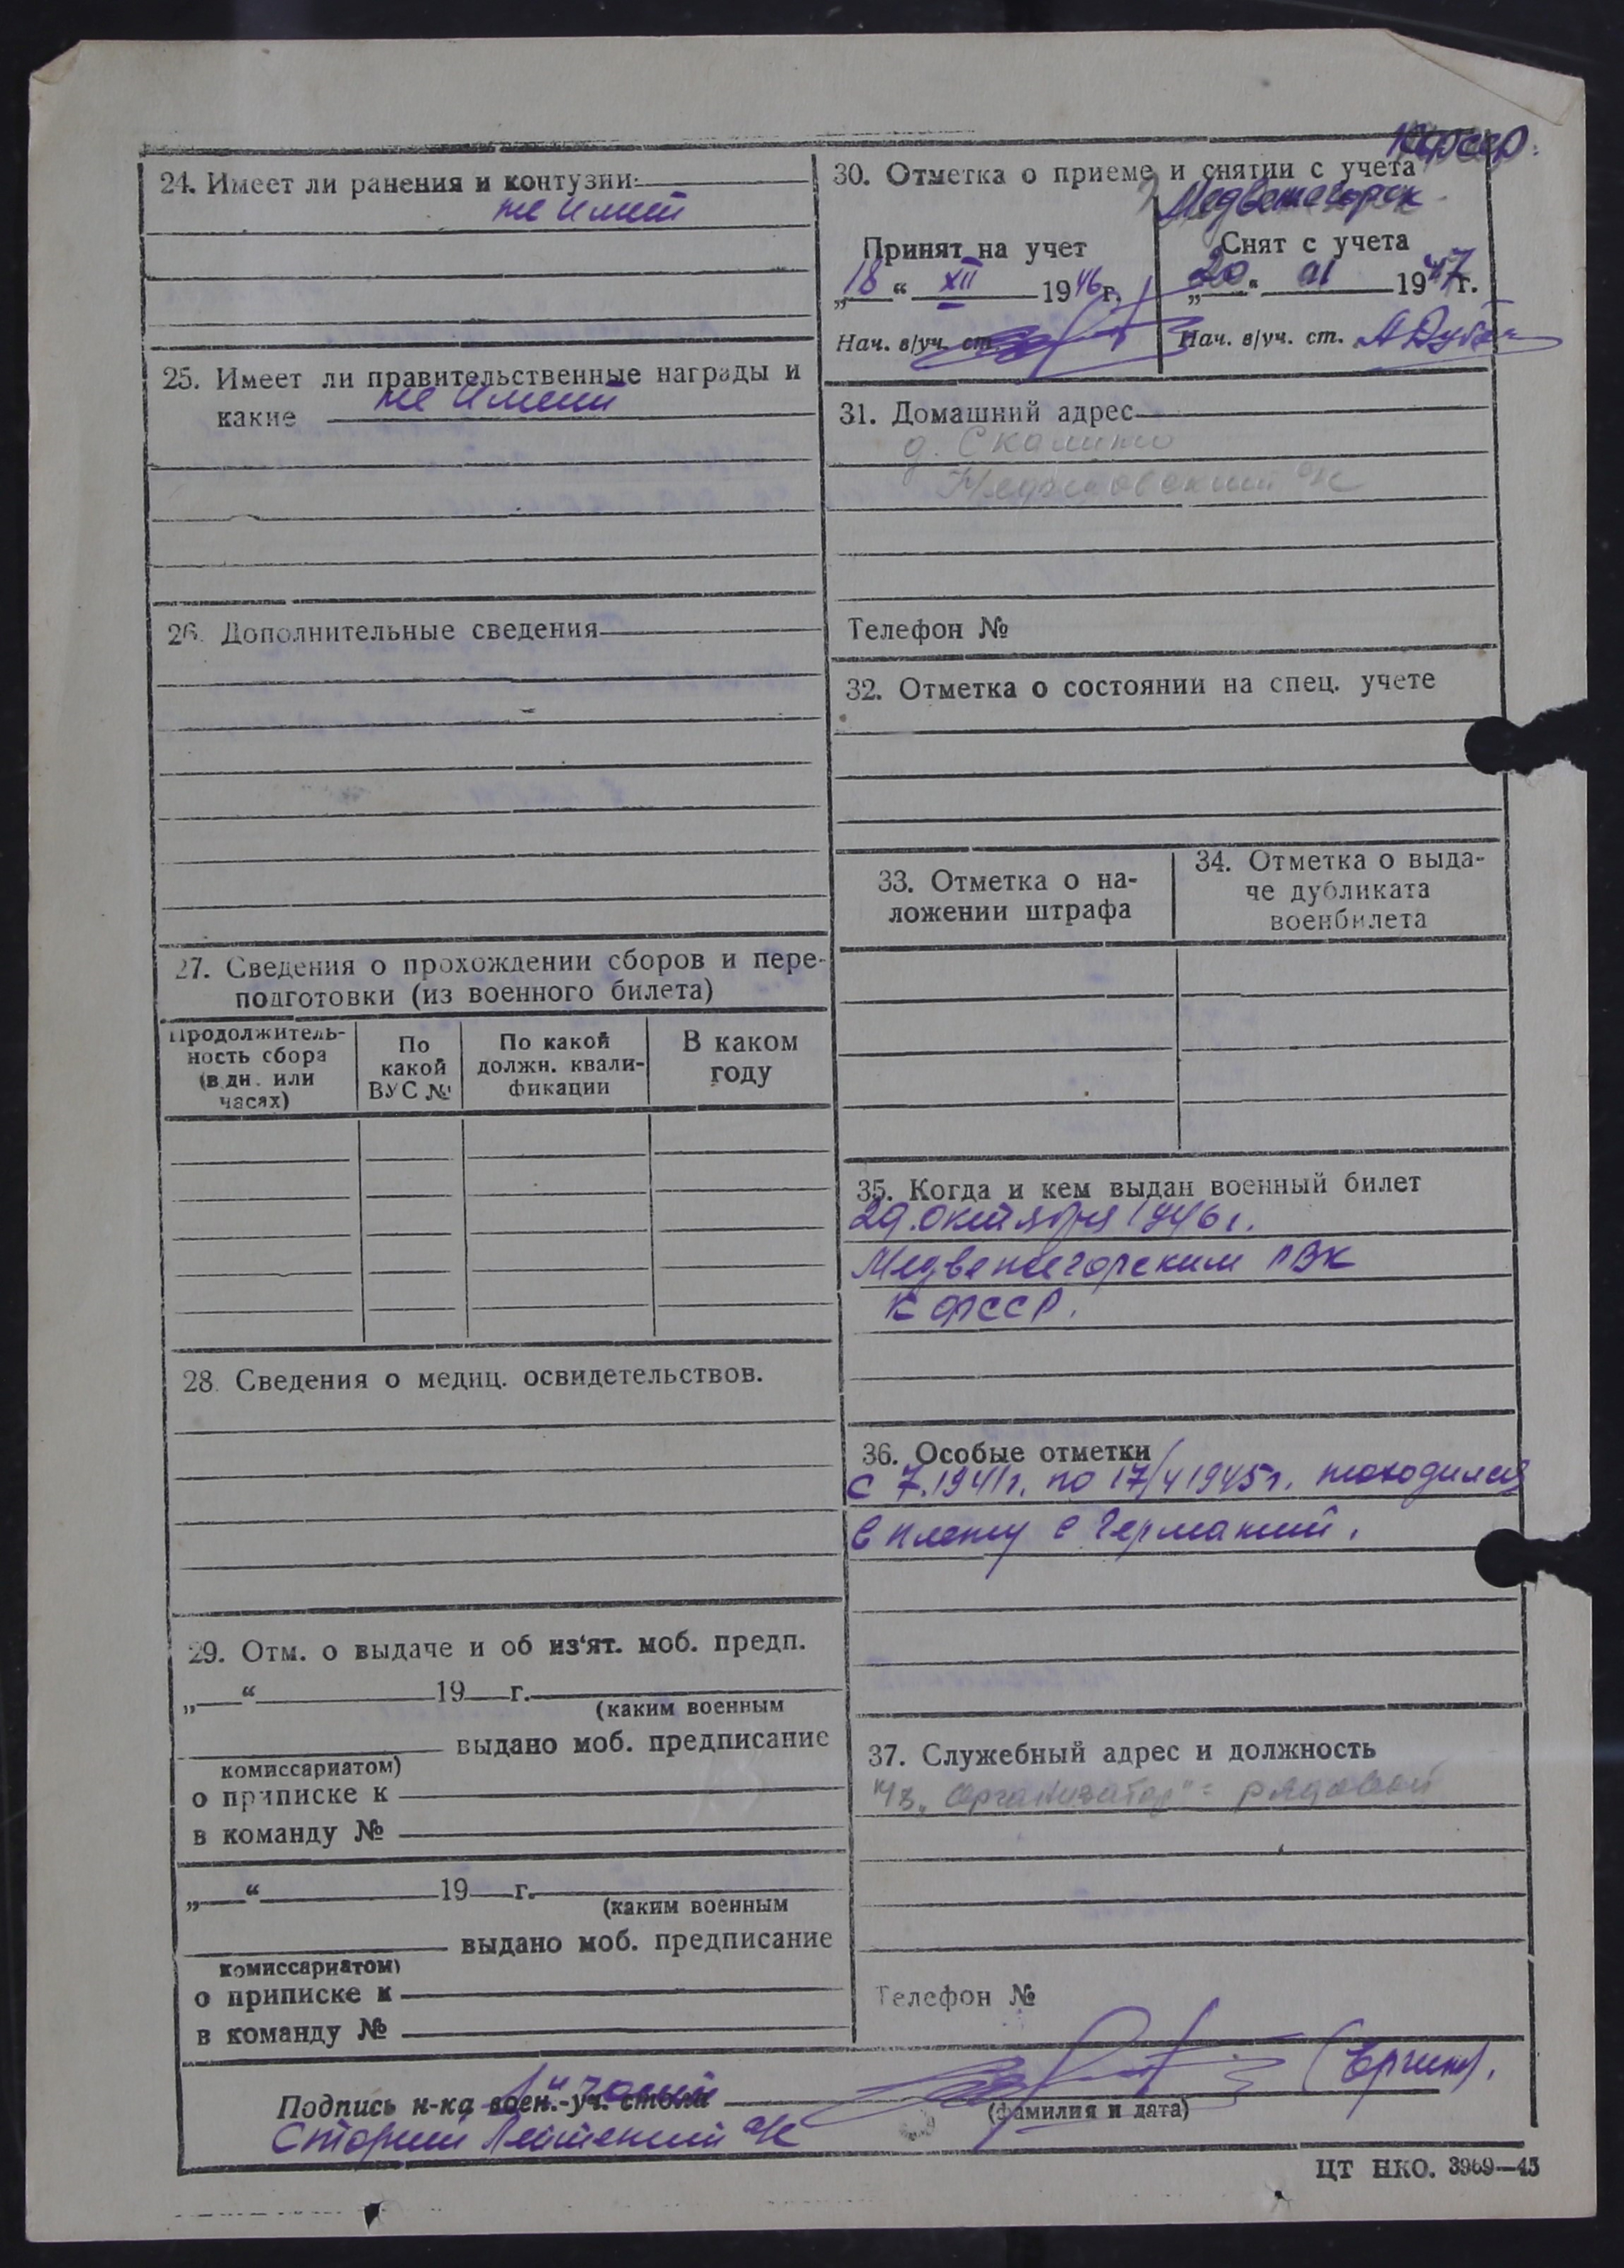 24. Имеет ли ранения и контузии
не имеет
25. Имеет ли правительственные награды и
какие не имеет
26. Дополнительные сведения
27. Сведения о прохождении сборов и пере-
подготовки (из военного билета)
Продолжитель-
ность сбора
(в дн. или
часах)
По
какой
ВУС №
По какой
должн. квали-
фикации
В каком
году
28. Сведения о медиц. освидетельствов.
29. Отм. о выдаче и об из‘ят. моб. предп.
„ “ 19 г.
(каким военным
выдано моб. предписание
комиссариатом)
о приписке к
в команду №
„ “ 19 г.
(каким военным
выдано моб. предписание
комиссариатом)
о приписке к
в команду №
КФССР.
30. Отметка о приеме и снятии с учета
Медвежегорск
Принят на учет
„18“ XII 1946г.
Нач. в/уч. ст.
Снят с учета
„20“ 1947г.
Нач. в/уч. ст.
31. Домашний адрес
д.
р/к
Телефон №
32. Отметка о состоянии на спец. учете
33. Отметка о на-
ложении штрафа
34. Отметка о выда-
че дубликата
военбилета
35. Когда и кем выдан военный билет
29. октября 1946 г.
Медвежегорским РВК
КФССР.
36. Особые отметки
с 7.1941г. по 17/4 1945г. находился
в плену в Германии.
37. Служебный адрес и должность
"Организатор" = рядовой
Телефон №
Подпись н-ка воен.-уч. стола
(фамилия и дата)
Старший Лейтенант а/с
ЦТ НКО. 3969—45